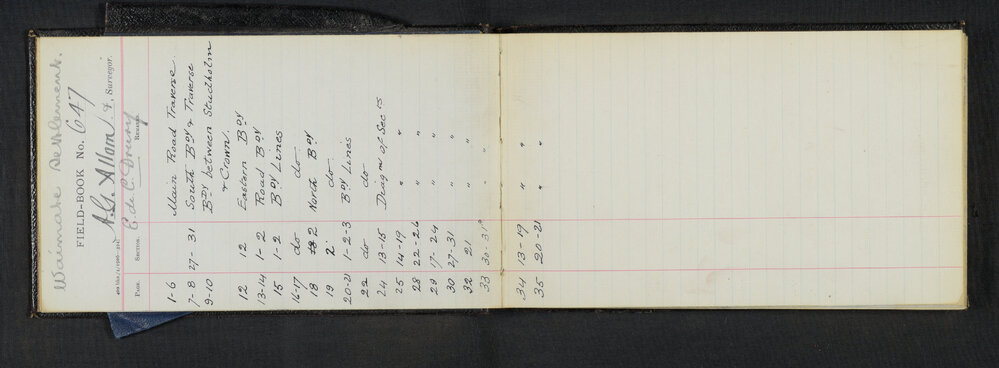 Waimate Settlement.
FIELD-BOOK No. 647
A.G. Allom L.S., Surveyor.
E de C Drury
PAGE. SECTION. REMARKS.
1-6 Main Road Traverse
7-8 27-31 South Bdy & Traverse
9-10 Bdy between Studholm
& Crown.
12 12 Eastern Bdy
13-14 1-2 Road Bdy
15 1-2 Bdy Lines
16-17 do do
18 2 North Bdy
19 2 do
20-21 1-2-3 Bdy Lines
22 do do
24 13-15 Diagm of Secns
25 14-19 " "
28 22-26 " "
29 17-24 " "
30 27-31 " "
32 21 " "
33 30-31 " "
34 13-19 " "
35 20-21 " "